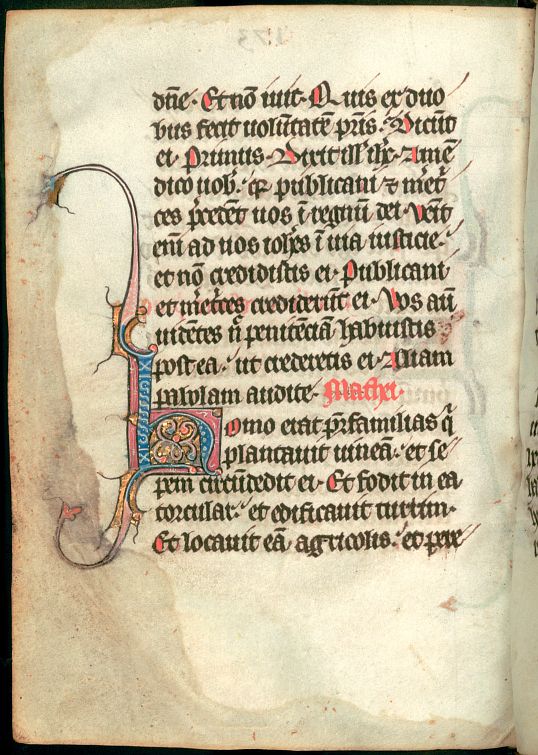 173
dn̄e· Et nō iuit· Quis ex duo
bus fecit uolūtatē pr̄is· Dicūt
ei· Primus· Dixit ill' ih̄c· Amē
dico uob'· qꝫ publicani ⁊ met̄
ces p̄cedēt uos ī regnū dei· Venit
eni᷒ ad uos ioh̄es ī uia iusticie·
et nō credidistis ei· Publicani
et met̄ces crediderūt ei· Vos aūt
uidētes n̄ penitēciā habuistis
post ea· ut crederetis ei· Aliam
p̄abolam audite· Mathei·
Homo erat pr̄familias q̄
plantauit uineā· et se
pem circūdedit ei· Et fodit in ea
torcular· et edificauit turrim·
Et locauit eā agricolis· et pere